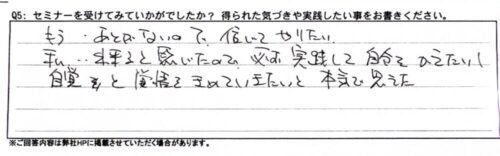 Q5: セミナーを受けてみていかがでしたか？ 得られた気づきや実践したい事をお書きください。
もう…あとがないので、信じてやりたい。
私…来ると感じたので、必ず実践して自分をかえたいし
自覚をと覚悟をきめていきたいと本気で思えた
※ご回答内容は弊社HPに掲載させていただく場合があります。